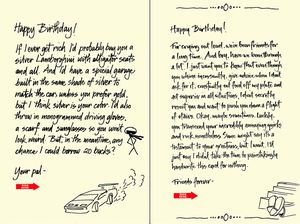 Happy Birthday!
If I ever get rich I'd probably buy you a
silver Lamborghini with alligator seats
and all. And I'd have a special garage
built in the same shade of silver to
match the car, unless you prefer gold,
but I think silver is your color. I'd also
throw in monogrammed driving gloves,
a scarf and sunglasses so you won't
look weird. But, in the meantime, any
chance I could borrow 20 bucks?
Your pal -
Happy Birthday!
For crying out loud, we've been friends for
a long time. And boy, have we been through
a lot. I just want you to know that even though
you whine incessantly, give advice when I don't
ask for it, constantly eat food off my plate and
act superior in all situations, I don't secretly
resent you and want to push you down a flight
of stairs. Okay, maybe sometimes. Luckily,
you transcend your incredibly annoying quirks
and rock nonetheless. Some might say it's a
testament to your greatness, but I won't. I'd
just say I didn't take the time to painstakingly
handwrite this card for nothing.
Friends forever -